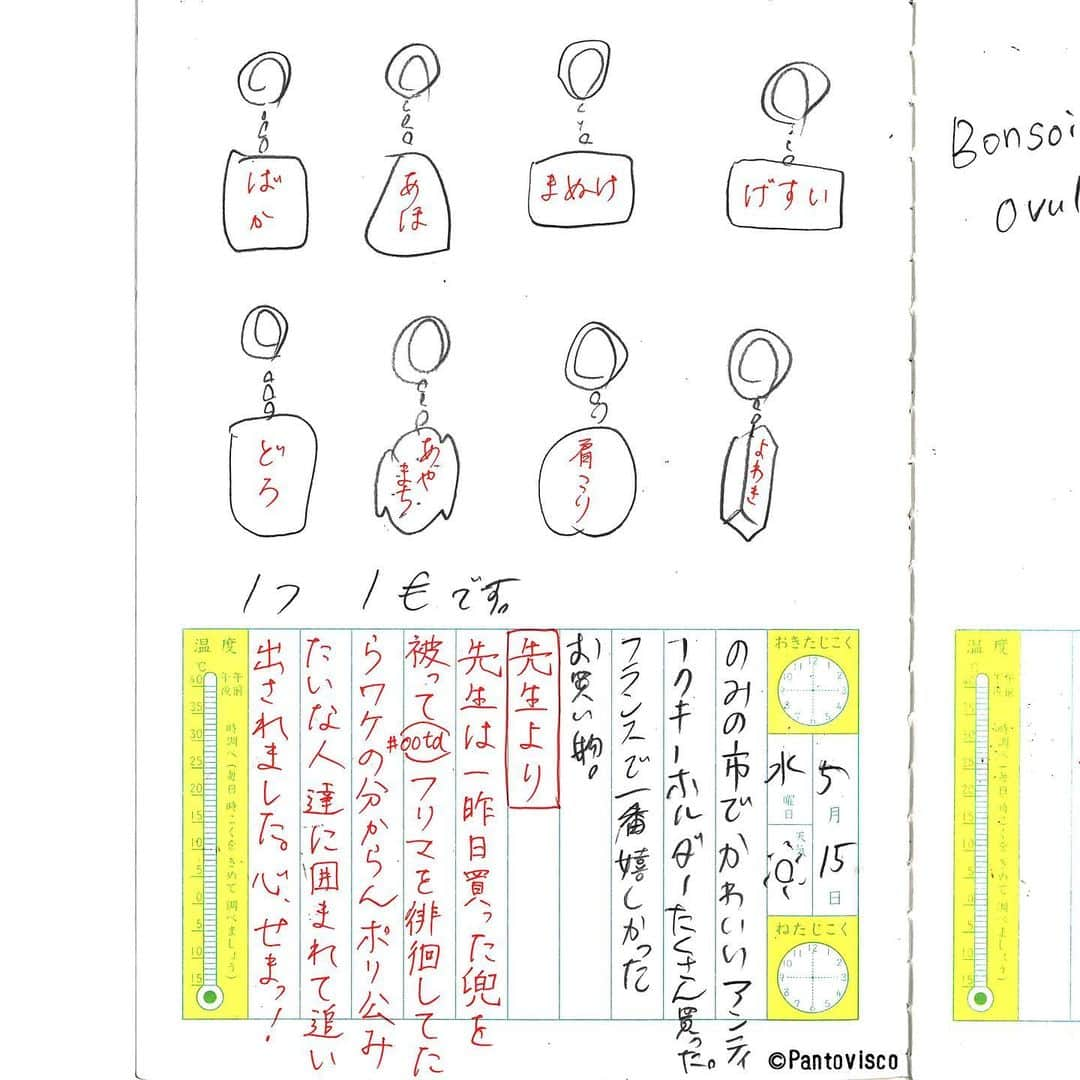 ばか
あほ
まぬけ
げすい
どろ
あやまち
肩こり
よわき
1つ 1€です。
Bonsoi
ovul
おきたじこく
5月15日
水曜日
天気
ねたじこく
のみの市でかわいいアンティ
ークキーホルダーたくさん買った。
フランスで一番嬉しかった
お買い物。
先生より
先生は一昨日買った兜を
被って#ootd フリマを徘徊してた
らワケの分からんポリ公み
たいな人達に囲まれて追い
出されました。心、せまっ!
温度
℃
午前
午後
40
35
30
25
20
15
10
5
0
5
10
15
時調べ(毎日時こくをきめて調べましょう)
温度
©Pantovisco